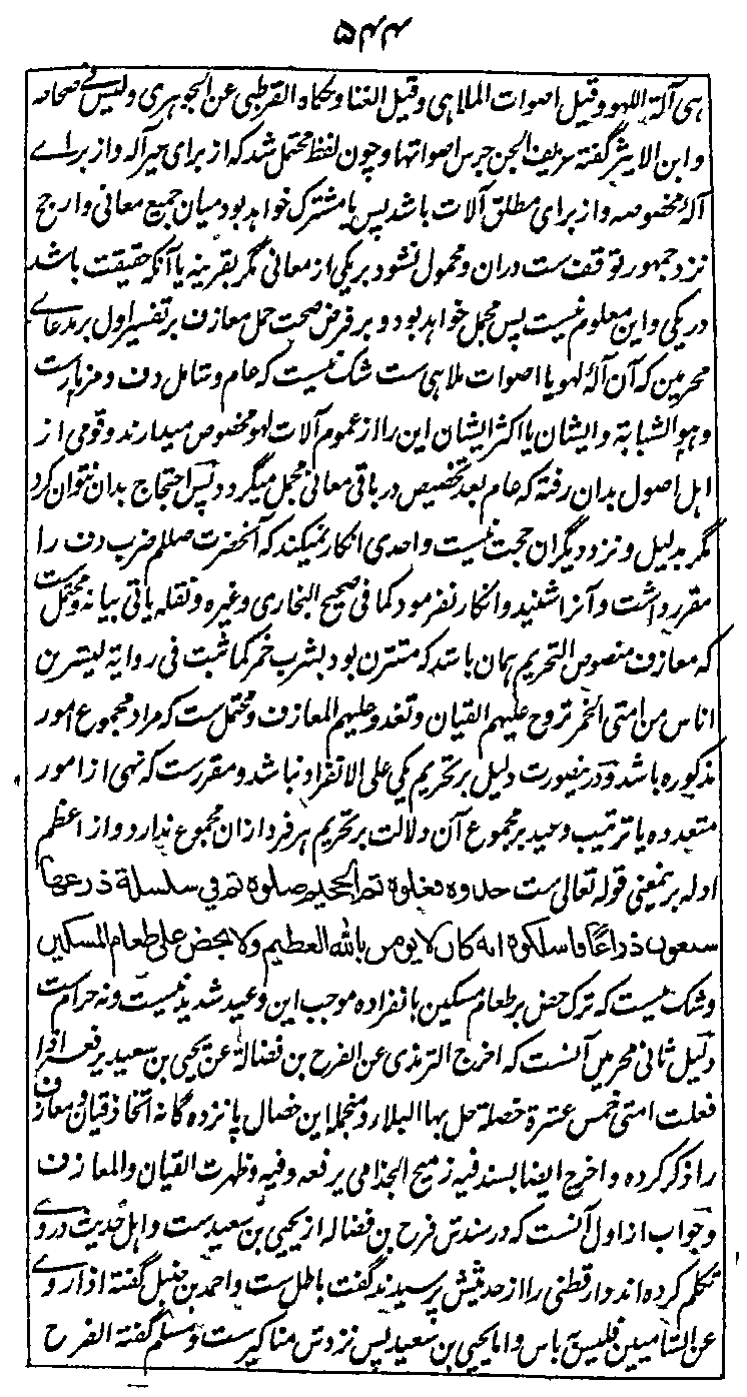 ۴۴۵
هی آلة اللهو وقیل اصوات الملاهی وقیل الغنا وحکاه القرطبی عن الجوهری ولیس فی صحاحه
وابن الاثیر گفته عزیف الجن جرس اصواتها وچون لفظ محتمل شد که از برای جیر آله واز برای
آلۀ مخصوصه واز برای مطلق آلات باشد پس یا مشترک خواهد بود میان جمیع معانی وارجح
نزد جمهور توقف ست دران ومحمول نشود بر یکی از معانی مگر بقرینه یا آنکه حقیقت باشد
در یکی واین معلوم نیست پس مجمل خواهد بود وبر فرض صحت حمل معازف بر تفسیر اول بر مدعای
محرمین که آن آلۀ لهو یا اصوات ملاهی ست شک نیست که عام وشامل دف ومزمارست
وهو الشبابة وایشان یا اکثر ایشان این را از عموم آلات لهو مخصوص میدارند وقومی از
اهل اصول بدان رفته که عام بعد تخصیص در باقی معانی مجمل میگردد پس احتجاج بدان نتوان کرد
مگر بدلیل ونزد دیگران حجت نیست واحدی انکار نمیکند که آنحضرت صللم ضرب دف را
مقرر داشت وآنرا شنید وانکار نفرمود کما فی صحیح البخاری وغیره ونقله یاتی بیانه ومحتمل ست
که معازف منصوص التحریم همان باشد که مقترن بود بشرب خمر کما ثبت فی روایة لیشربن
اناس من امتی الخمر تروح علیهم القیان وتغدو علیهم المعازف ومحتمل ست که مراد مجموع امور
مذکوره باشد ودرینصورت دلیل بر تحریم یکی علی الانفراد نباشد ومقررست که نهی از امور
متعدده یا ترتیب وعید بر مجموع آن دلالت بر تحریم هر فرد ازان مجموع ندارد واز اعظم
ادله برینمعنی قوله تعالی ست خذوه فغلوه ثم الجحیم صلوه ثم فی سلسلة ذرعها
سبعون ذراعًا فاسلکوه انه کان لا یومن بالله العظیم ولا یحض علی طعام المسکین
وشک نیست که ترک حض بر طعام مسکین بانفراده موجب این وعید شدید نیست ونه حرام ست
دلیل ثانی محرمین آنست که اخرج الترمذی عن الفرح بن فضالة عن یحیی بن سعید یرفعه اذا
فعلت امتی خمس عشرة خصلة حل بها البلاء ومنجمله این خصال پانزده گانه اتخاذ قیان ومعازف
را ذکر کرده واخرج ایضا بسند فیه رمیح الجذامی یرفعه وفیه وظهرت القیان والمعازف
وجواب از اول آنست که در سندش فرح بن فضاله از یحیی بن سعیدست واهل حدیث دروی
تکلم کرده اند ودارقطنی را از حدیثش پرسیدند گفت باطل ست واحمد بن حنبل گفته اذا روی
عن الشامیین فلیس به باس واما یحیی بن سعید پس نزدش مناکیرست ومسلم گفته الفرح